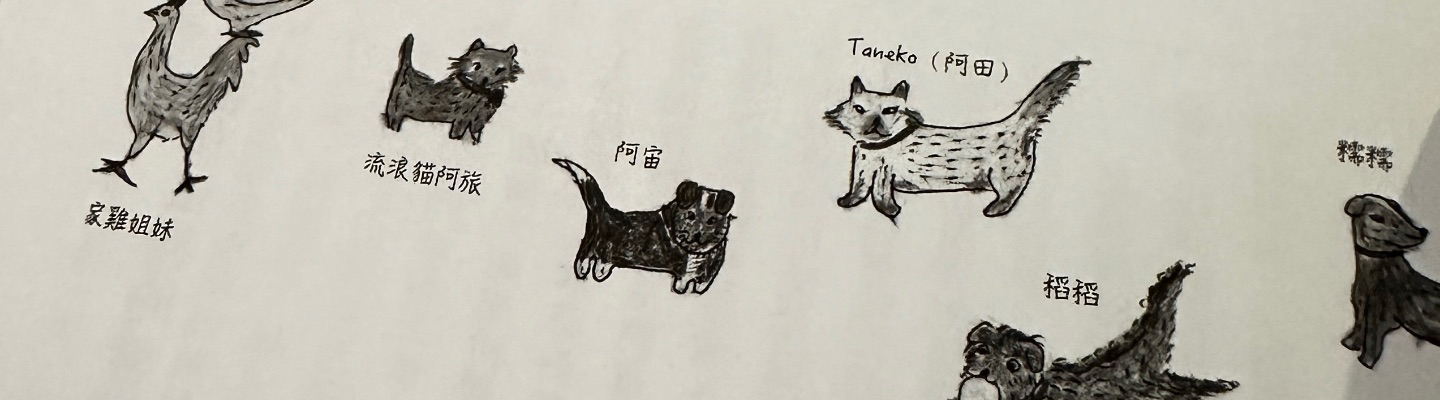 家雞姐妹
流浪貓阿旅
阿宙
Taneko（阿田）
稻稻
糯糯